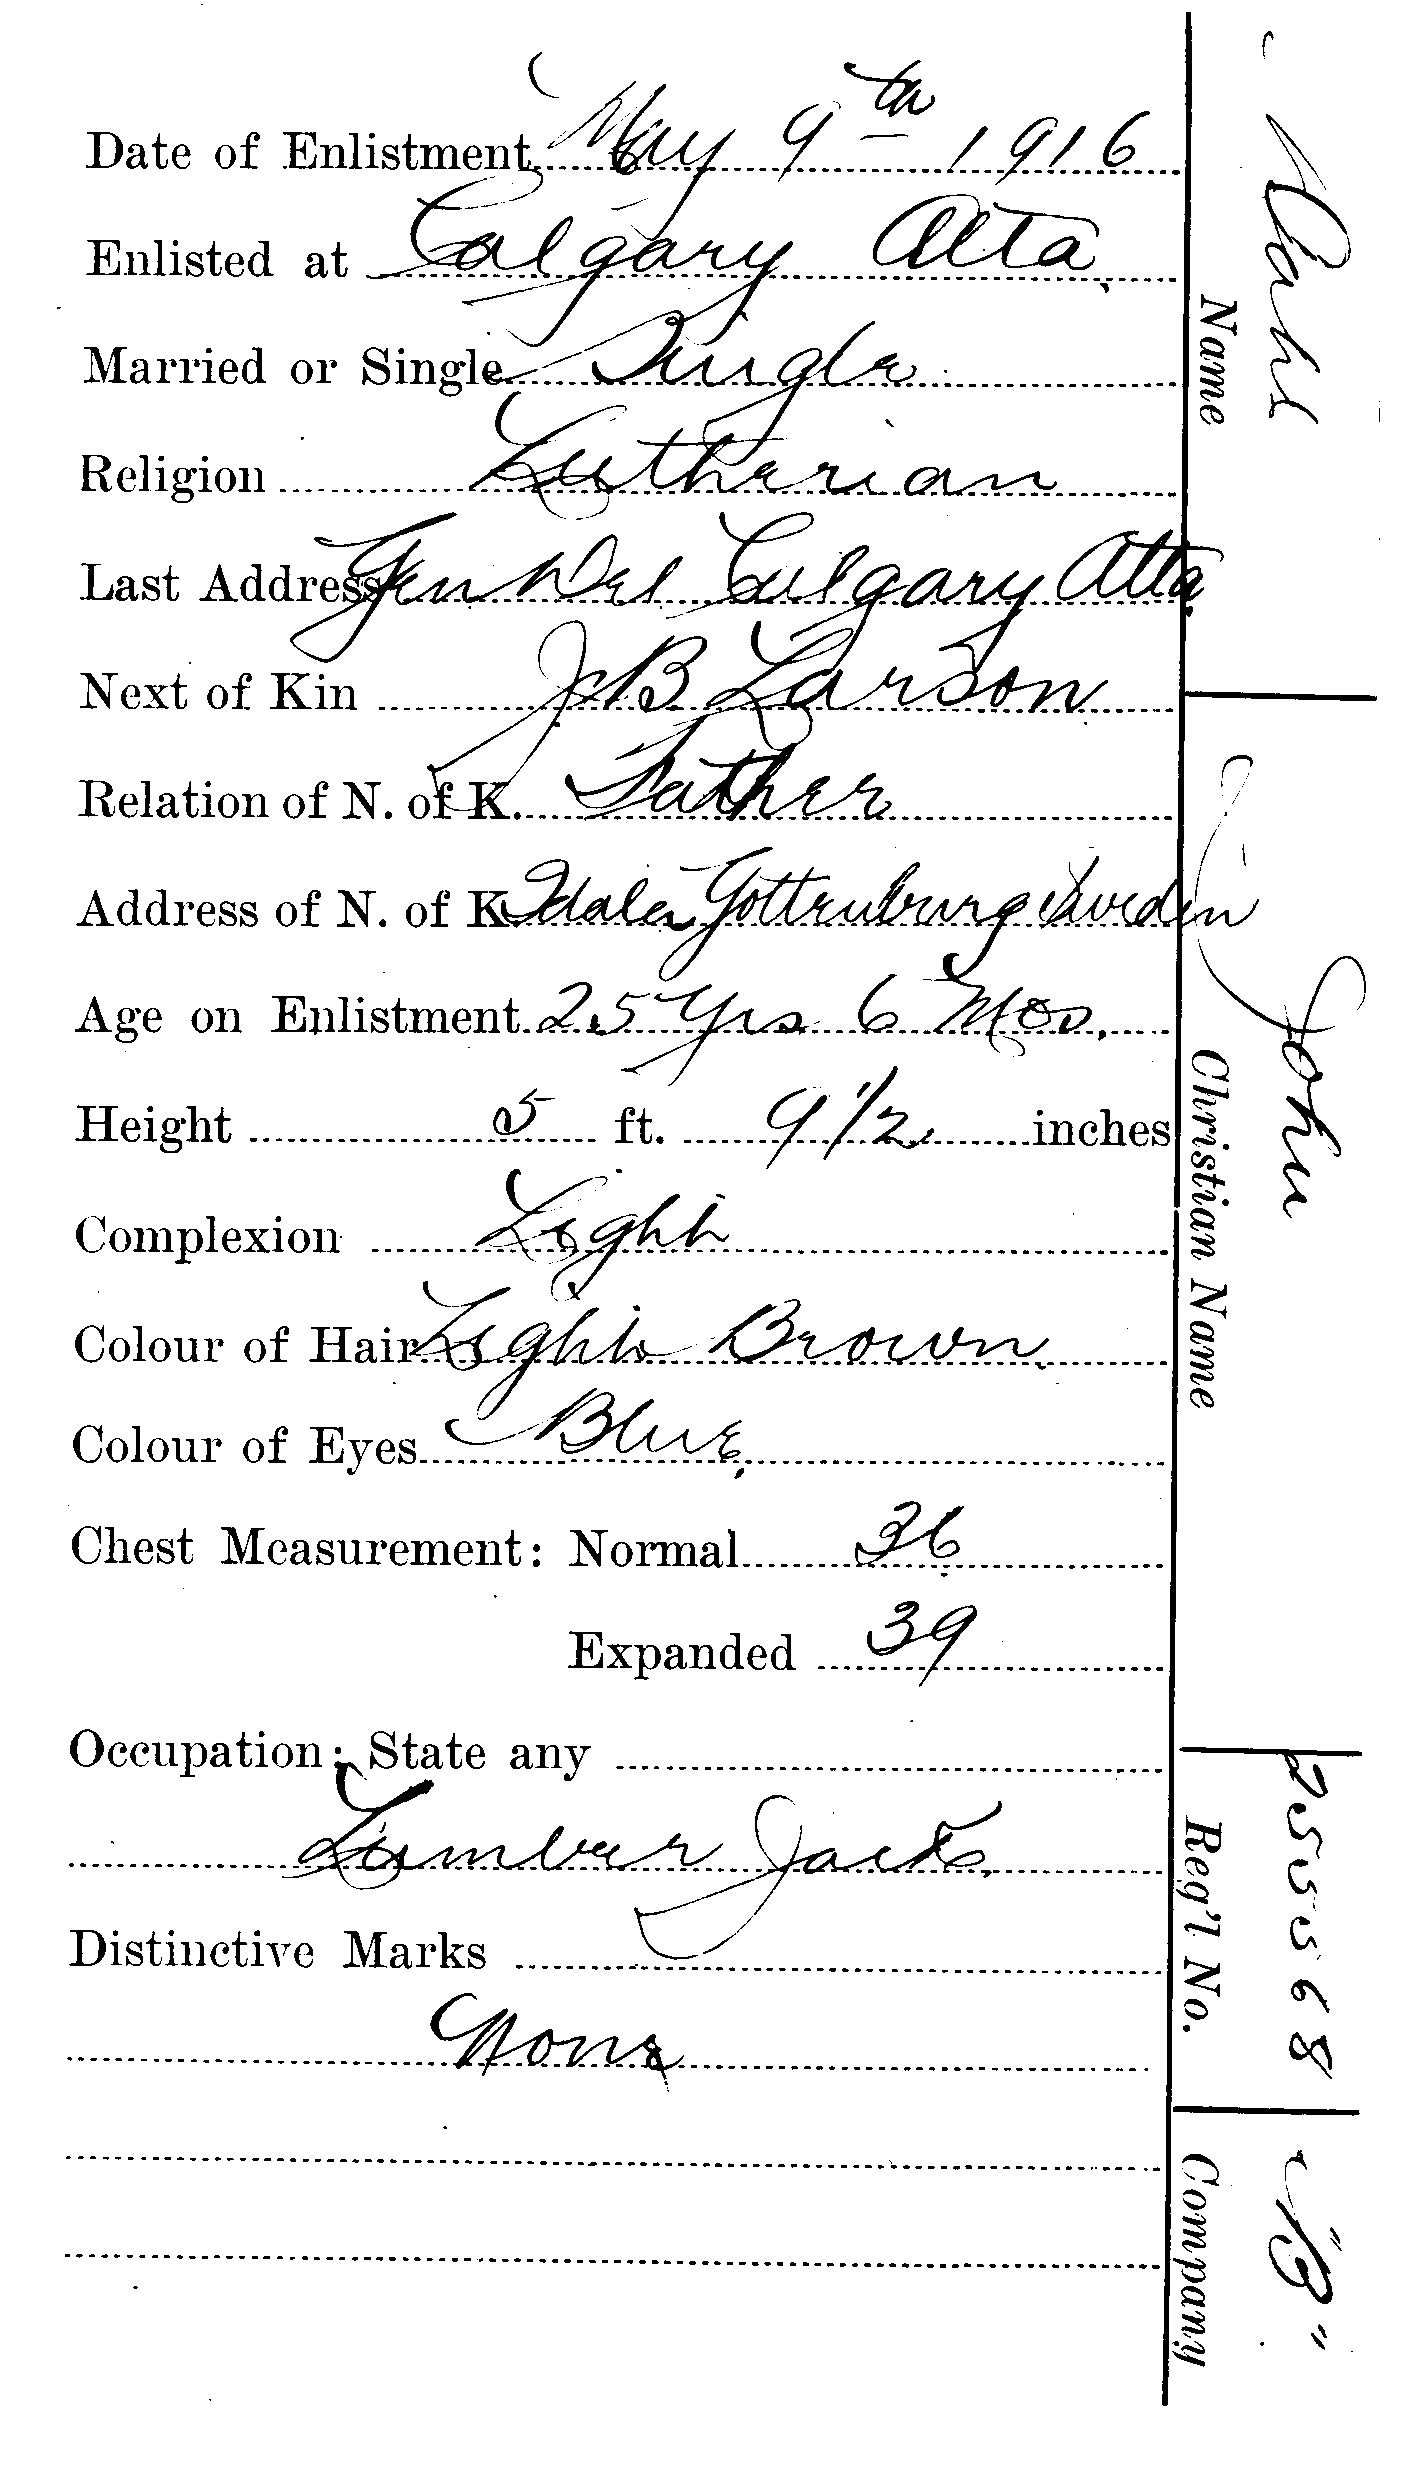 Date of Enlistment May 9th 1916
Enlisted at Calgary Alta.
Married or Single Single
Religion Lutherian
Last Address Gen Del Calgary Alta.
Next of Kin J B Larson
Relation of N. of K. Father
Address of N. of K. Gottenburg Sweden
Age on Enlistment 25 Yrs 6 Mos.
Height 5 ft. 9 1/2 inches
Complexion Light
Colour of Hair Light Brown
Colour of Eyes Blue.
Chest Measurement: Normal 36
Expanded 39
Occupation: State any
Lumber Jack.
Distinctive Marks
None
Name Dahl
Christian Name John
Reg'l No. 255568
Company "B"